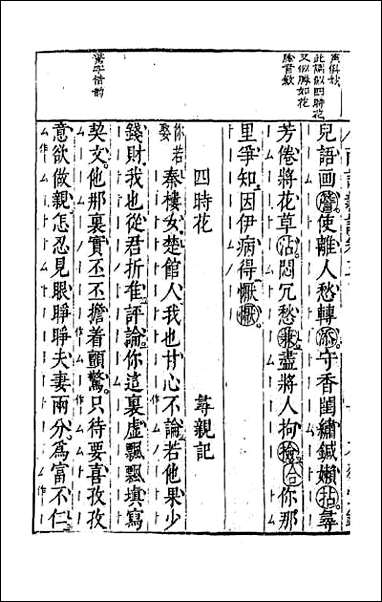 兒語画簷使離人愁轉添守香閨繡鍼嬾拈尋
芳倦將花草沾悶冗愁兼盡將人拘撿合你那
里爭知因伊病得懨懨
四時花 尋親記
你若娶秦樓女楚館人我也甘心不論若他果少
錢財我也從君折准評論你這裏虛飄飄填寫
契文他那裏實丕丕擔着顫驚只待要喜孜孜
意欲做親怎忍見眼睜睜夫妻兩分爲富不仁
此闋似四時花
又似勝如花